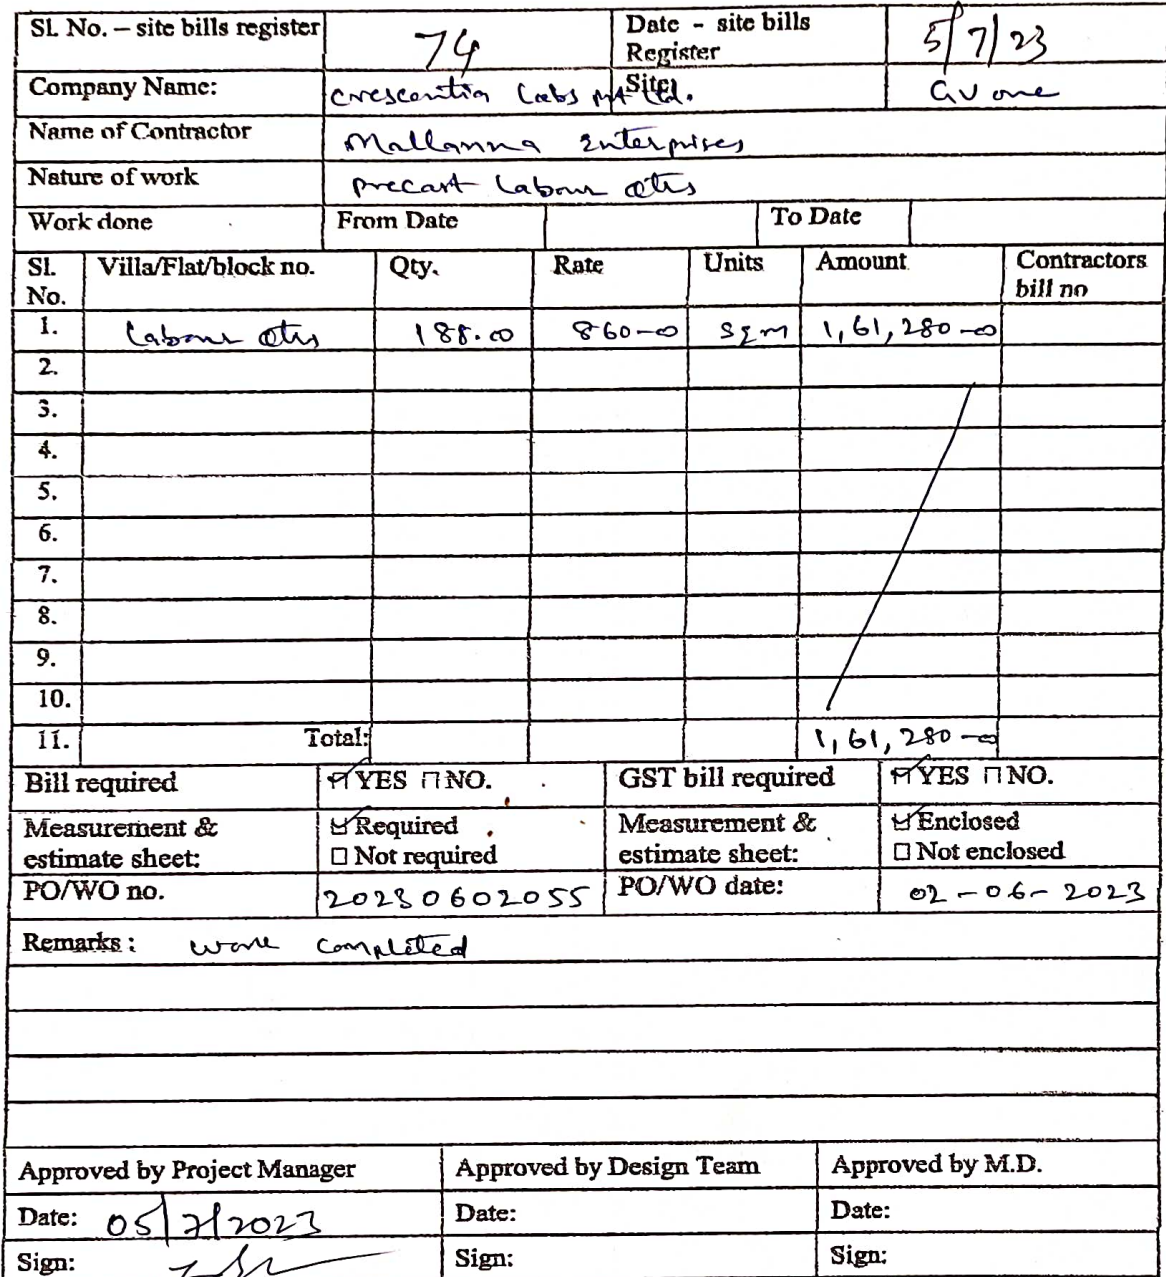 Sl. No. – site bills register 74 Date - site bills Register 5/7/23
Company Name: Crescentia Labs Pvt Ltd. Site: GV one
Name of Contractor Mallanna Enterprises
Nature of work precast labour
Work done From Date To Date
Sl. No. Villa/Flat/block no. Qty. Rate Units Amount Contractors bill no
1. labour 188.00 860-00 sqm 1,61,280-00
2.
3.
4.
5.
6.
7.
8.
9.
10.
11. Total: 1,61,280-00
Bill required ☑ YES ☐ NO. GST bill required ☑ YES ☐ NO.
Measurement & estimate sheet: ☑ Required ☐ Not required Measurement & estimate sheet: ☑ Enclosed ☐ Not enclosed
PO/WO no. 20230602055 PO/WO date: 02-06-2023
Remarks: work completed
Approved by Project Manager Approved by Design Team Approved by M.D.
Date: 05/7/2023 Date: Date:
Sign: Sign: Sign: